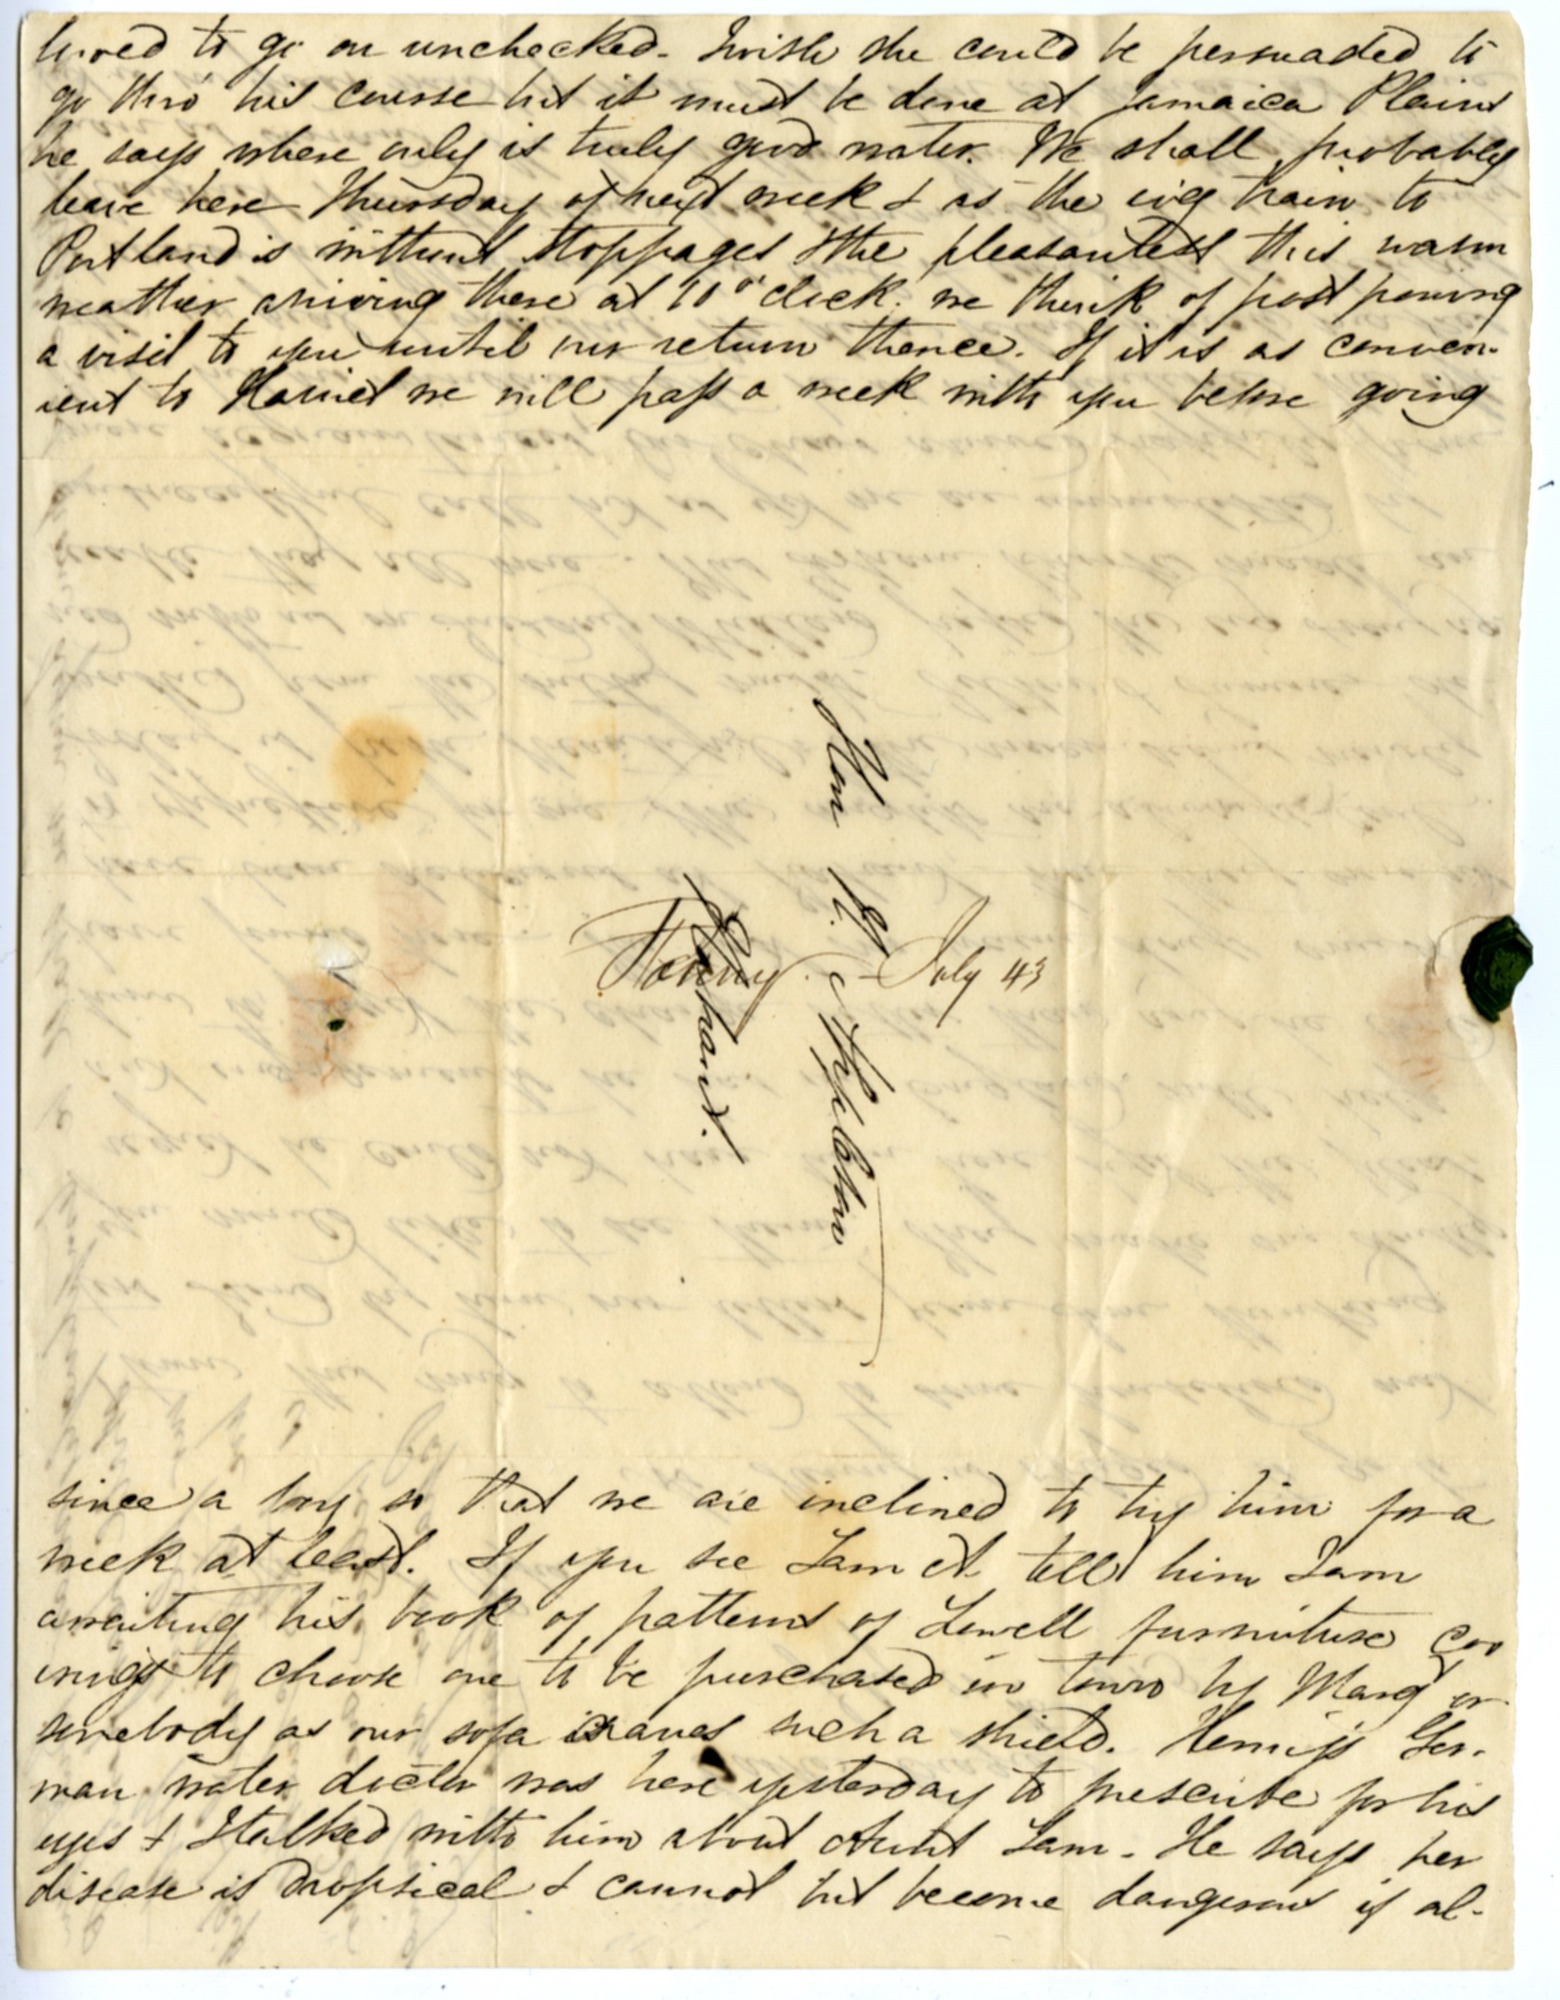 lowed to go on unchecked. I wish she could be persuaded to
go thro' his course but it must be done at Jamaica Plains
he says where only is truly good water. We shall probably
leave here Thursday of next week & as the evg train to
Portland is without stoppages & the pleasantest this warm
weather arriving there at 10 o'clock. we think of post poning
a visit to you until our return thence. If it is as conven-
ient to Harriet we will pass a week with you before going
Hon N. Appleton
Nahant.
Fanny. - July 43
since a boy so that we are inclined to try him for a
week at least. If you see Sam A tell him I am
awaiting his book of patterns of Lowell furniture cov
erings to choose one to be purchased in town by Mary or
somebody as our sofa craves such a shield. Henry's Ger-
man water doctor was here yesterday to prescribe for his
eyes & I talked with him about Aunt Sam. He says her
disease is dropsical & cannot but become dangerous if al-